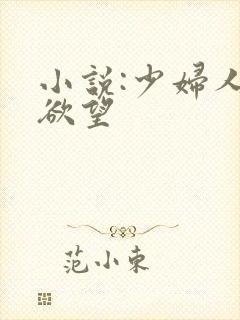 小説:少婦人
欲望
范小東